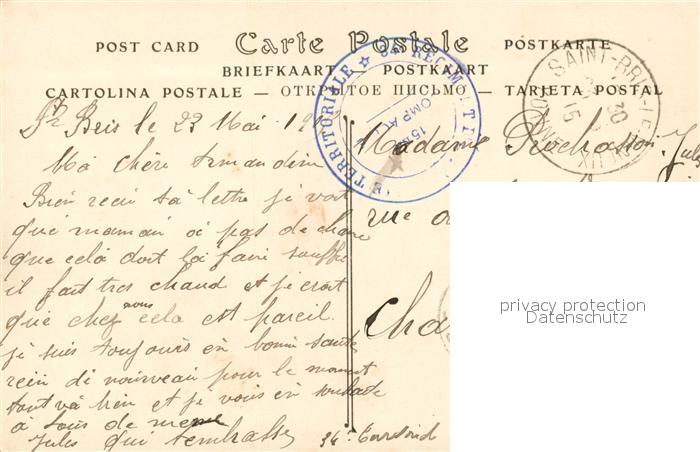 POST CARD Carte Postale POSTKARTE
BRIEFKAART — POSTKAART
CARTOLINA POSTALE — ОТКРЫТОЕ ПИСЬМО — TARJETA POSTAL
TERRITORIALE ★ 34e REGIMENT
SAINT-BRI
15
30
le 29 Mai 191
Ma chère Armandine
Bien recu ta lettre je voit
que maman a pas de chance
que celà doit la faire souffri
il fait tres chaud et je croit
que chez nous cela est pareil.
je suis toujours en bonne santé
rein di nouveau pour le moment
tout va bien et je vous en souhaite
à tous de meme
Jules qui tembrasse
Madame Rochasson Jules
rue
Cha
34e
privacy protection
Datenschutz